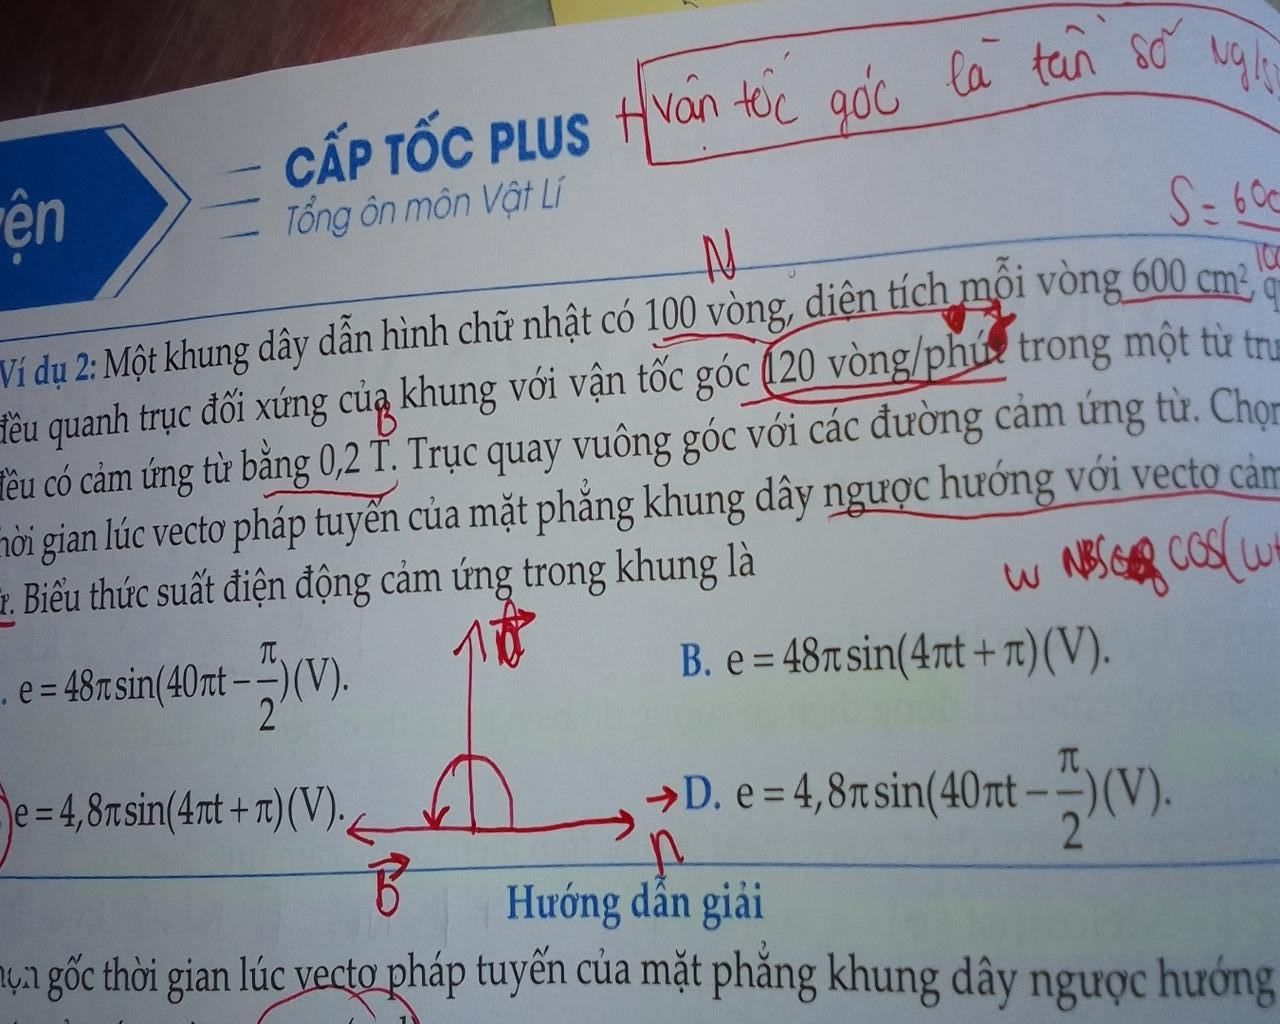 + vận tốc góc là tần số ng/s
ện
CẤP TỐC PLUS
Tổng ôn môn Vật Lí
S = 600
N
Ví dụ 2: Một khung dây dẫn hình chữ nhật có 100 vòng, diện tích mỗi vòng 600 cm², q
đều quanh trục đối xứng của khung với vận tốc góc 120 vòng/phút trong một từ trư
B
đều có cảm ứng từ bằng 0,2 T. Trục quay vuông góc với các đường cảm ứng từ. Chọn
hời gian lúc vectơ pháp tuyến của mặt phẳng khung dây ngược hướng với vectơ cảm
ừ. Biểu thức suất điện động cảm ứng trong khung là
w NBS cos(wt
. e = 48πsin(40πt − π/2)(V).
B. e = 48πsin(4πt + π)(V).
e = 4,8πsin(4πt + π)(V).
D. e = 4,8πsin(40πt − π/2)(V).
B n
Hướng dẫn giải
họn gốc thời gian lúc vectơ pháp tuyến của mặt phẳng khung dây ngược hướng